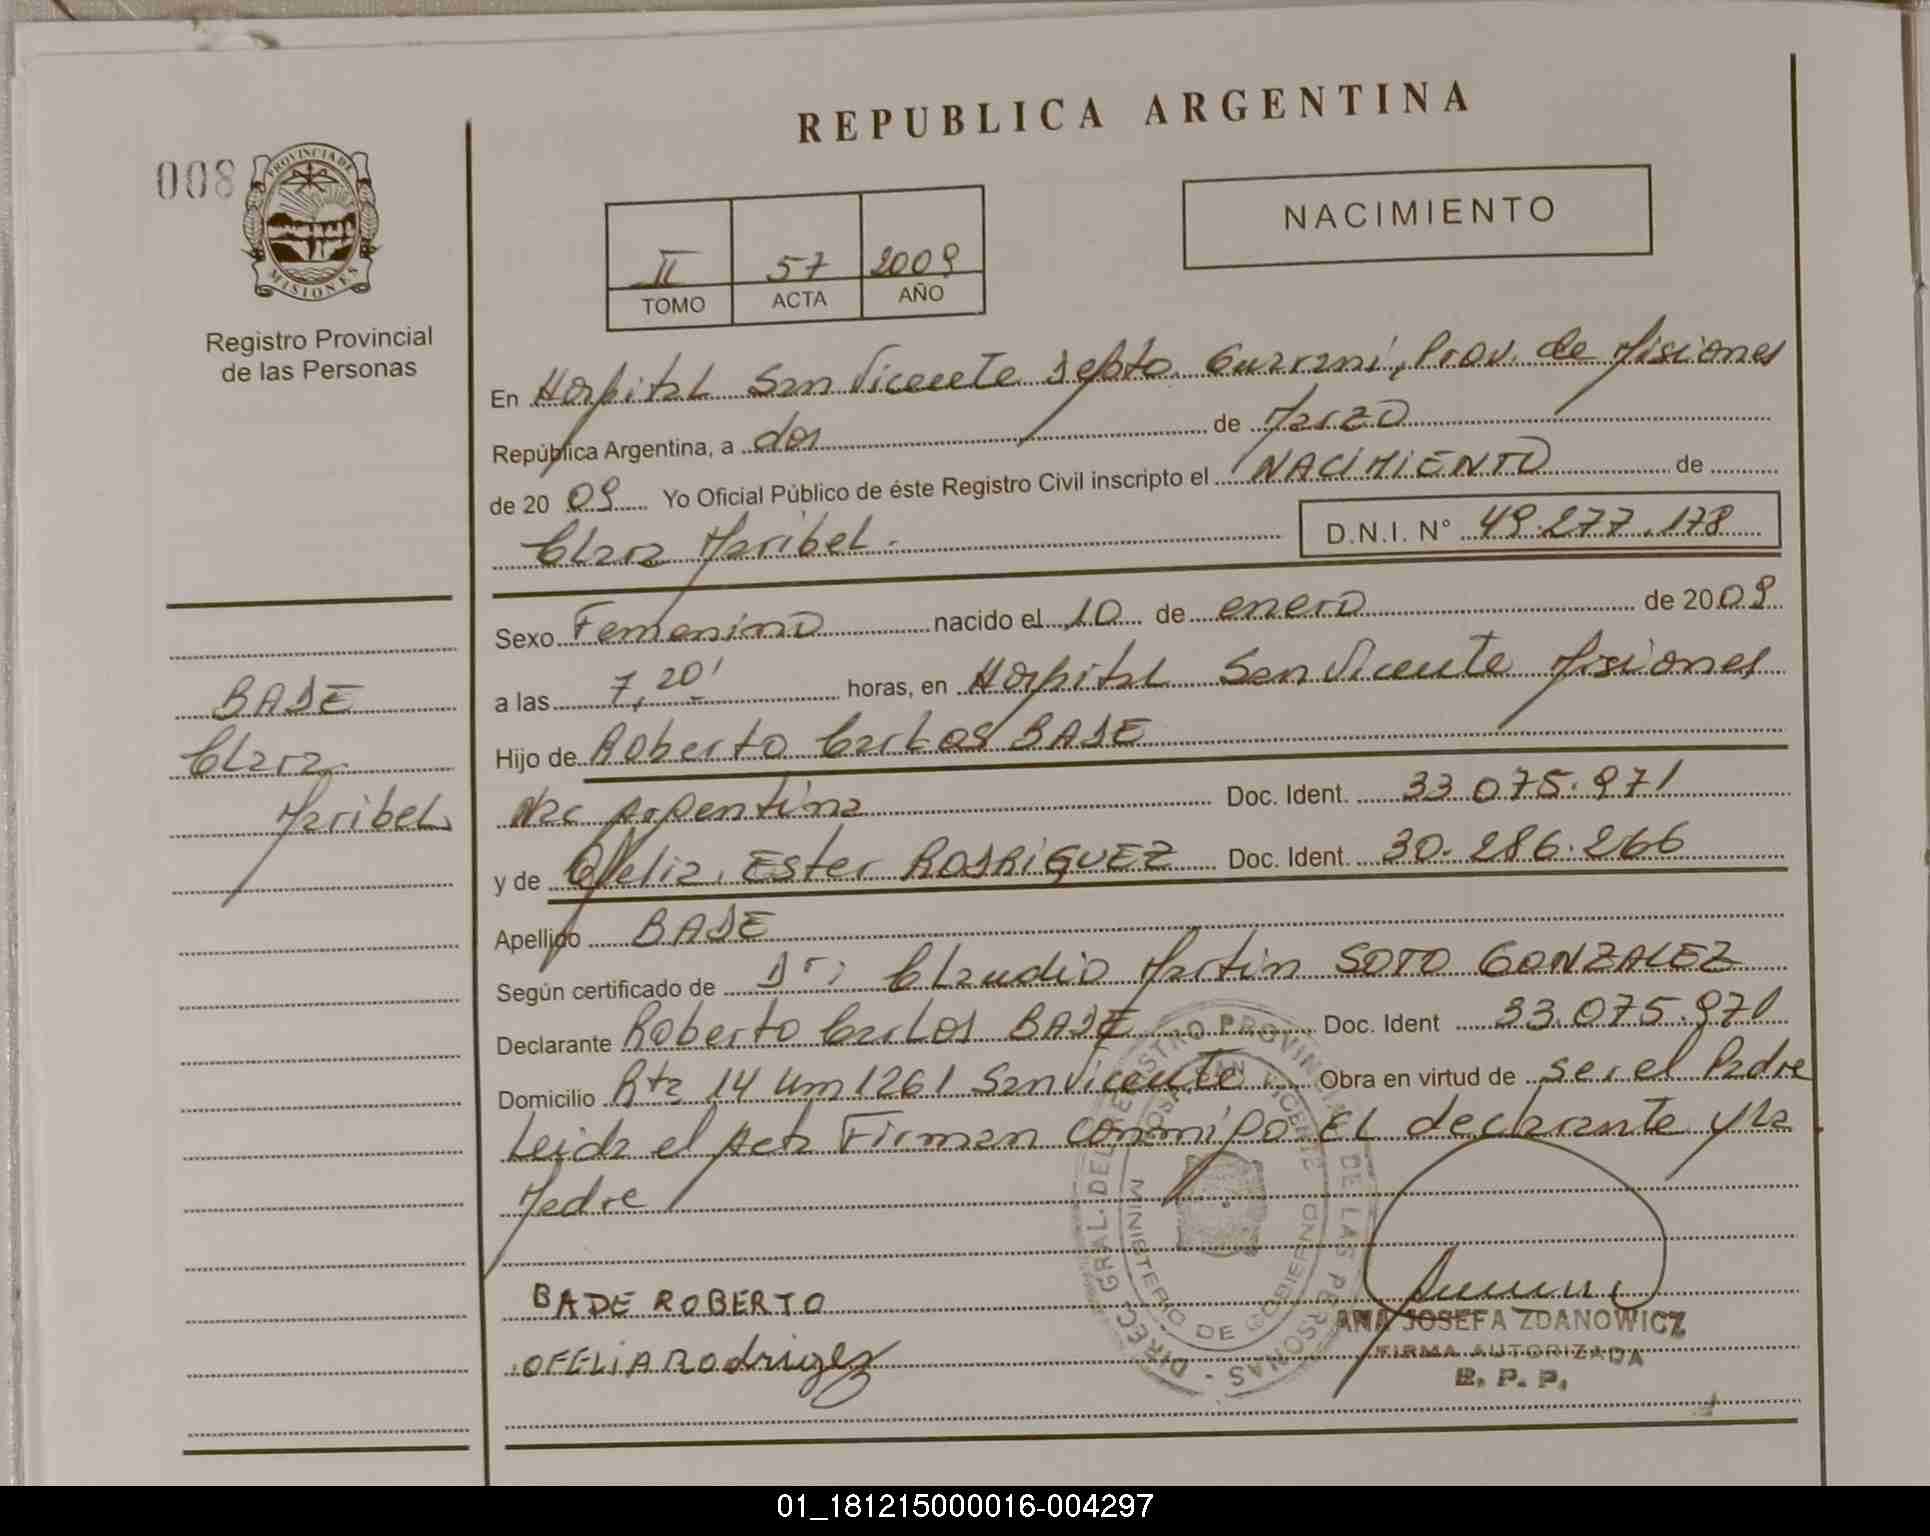 REPUBLICA ARGENTINA
008
PROVINCIA DE
MISIONES
Registro Provincial
de las Personas
NACIMIENTO
II 57 2009
TOMO ACTA AÑO
En Hospital San Vicente Depto. Guarani, Prov. de Misiones
República Argentina, a dos de Marzo
de 20 09 Yo Oficial Público de éste Registro Civil inscripto el NACIMIENTO de
Clara Maribel. D.N.I. N° 49.277.178
Sexo Femenino nacido el 10 de enero de 2009
a las 7,20' horas, en Hospital San Vicente Misiones
Hijo de Roberto Carlos BADE
Nac Argentina Doc. Ident. 33.075.971
y de Ofelia Ester RODRIGUEZ Doc. Ident. 30.286.266
Apellido BADE
Según certificado de Dr: Claudio Martin SOTO GONZALEZ
Declarante Roberto Carlos BADE Doc. Ident 33.075.971
Domicilio Rta 14 Km 1261 San Vicente Obra en virtud de ser el Padre
Leida el Acta Firman conmigo El declarante y la
Madre
BADE
Clara
Maribel
BADE ROBERTO
OFELIA Rodrigez
DIREC. GRAL. DEL REGISTRO PROVINCIAL DE LAS PERSONAS
MINISTERIO DE GOBIERNO
ANA JOSEFA ZDANOWICZ
FIRMA AUTORIZADA
R. P. P.
01_181215000016-004297